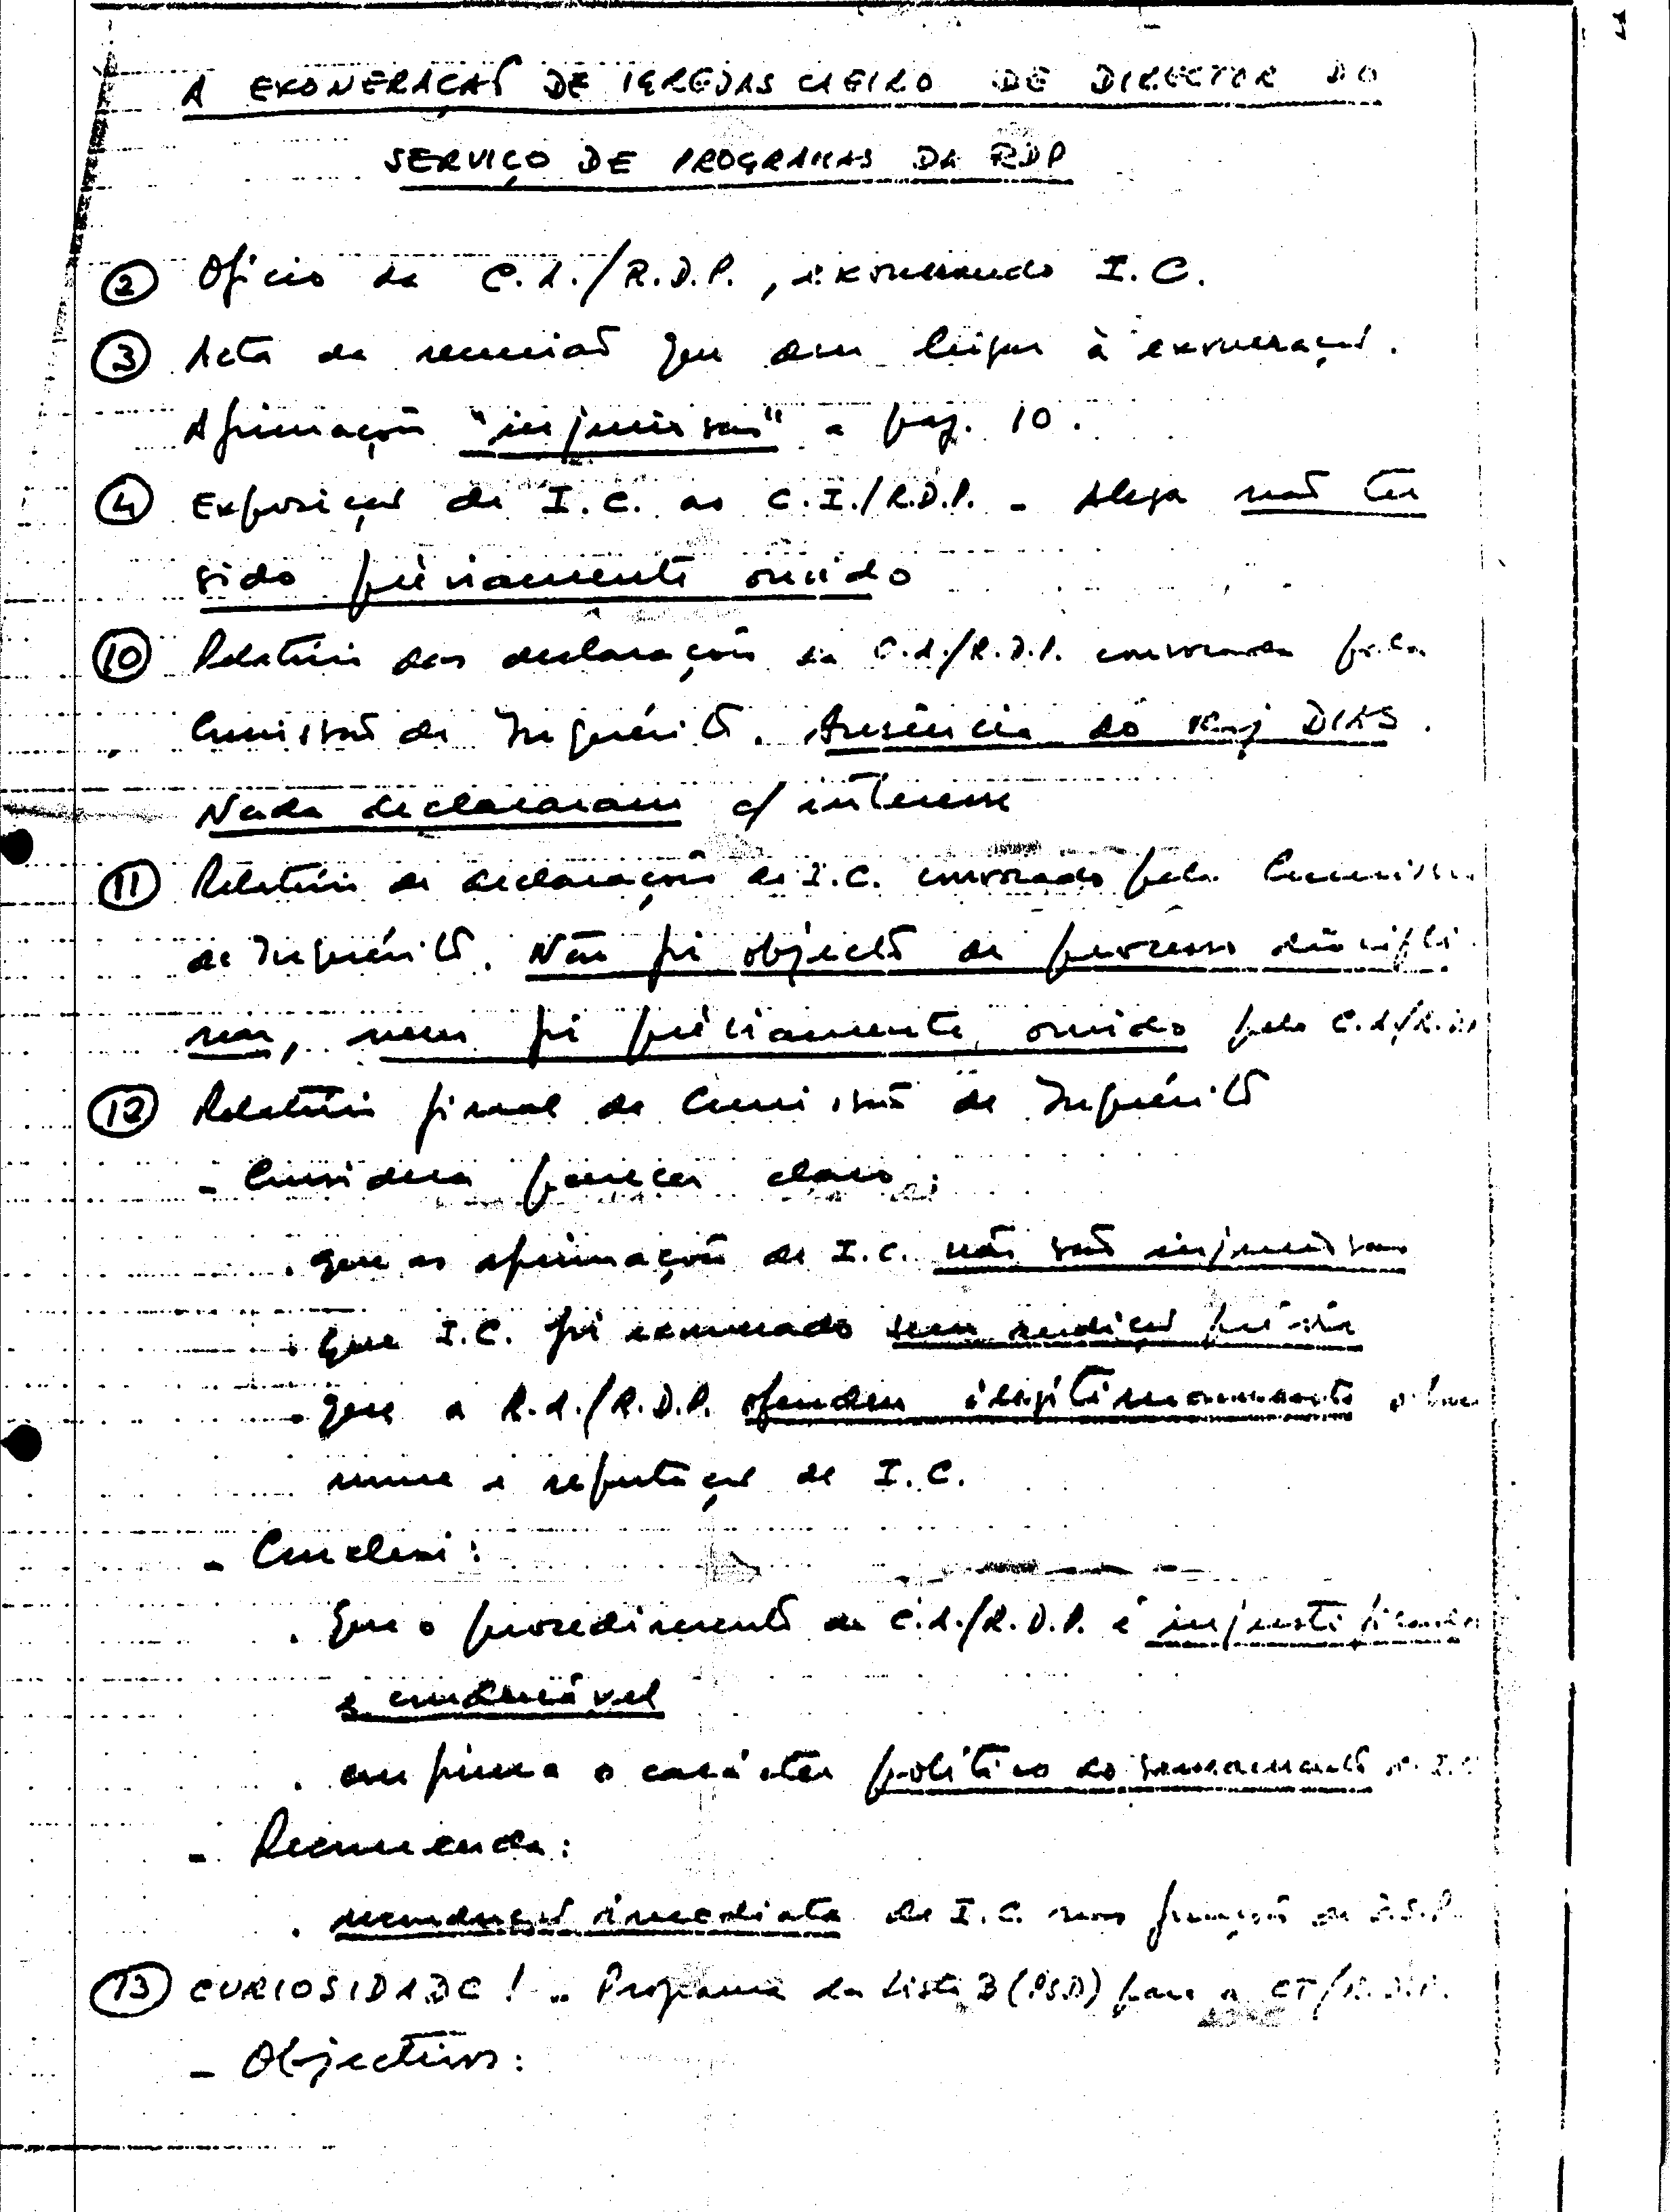 A EXONERAÇÃO DE IGREJAS CAEIRO DE DIRECTOR DO
SERVIÇO DE PROGRAMAS DA RDP
② Ofício da C.A./R.D.P., exonerando I.C.
③ Acta da reunião que deu lugar à exoneração.
Afirmações "injuriosas" a pag. 10.
④ Exposição de I.C. ao C.I./R.D.P. - Alega não ter
sido préviamente ouvido
⑩ Relatório das declarações da C.A./R.D.P. convocada pela
Comissão de Inquérito. Ausência do Maj DIAS.
Nada declararam c/ interesse
⑪ Relatório de declarações de I.C. convocado pela Comissão
de Inquérito. Não foi objecto de processo discipli
nar, nem foi préviamente ouvido pela C.A/R.D
⑫ Relatório final da Comissão de Inquérito
- Considera parecer claro:
. que as afirmações de I.C. não são injuriosas
. que I.C. foi exonerado sem audição prévia
. que a R.A./R.D.P. ofendeu ilegitimamente o bom
nome e reputação de I.C.
- Conclui:
. Que o procedimento da C.A./R.D.P. é injustificado
e condenável
. confirma o carácter político do saneamento de I.C
- Recomenda:
. recondução imediata de I.C. nas funções de D.S.P.
⑬ CURIOSIDADE! - Programa da Lista B (PSD) para a CT/R.D.P.
- Objectivos: